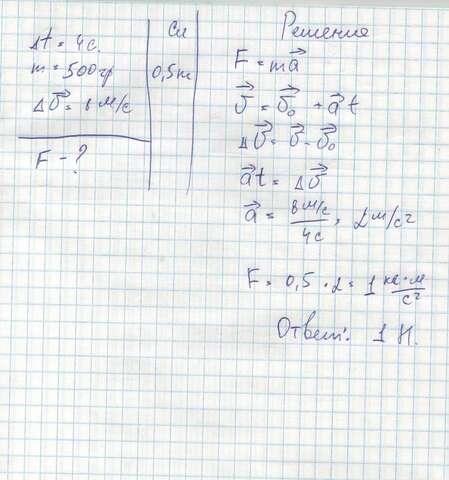 Си
Δt = 4с.
m = 500гр
0,5
Δv⃗ = 8 м/с
F - ?
Решение
F = ma⃗
v⃗ = v⃗₀ + a⃗t
Δv⃗ = v⃗ - v⃗₀
a⃗t = Δv⃗
a⃗ = 8 м/с / 4с = 2 м/с²
F = 0,5 · 2 = 1 кг·м/с²
Ответ: 1 Н.